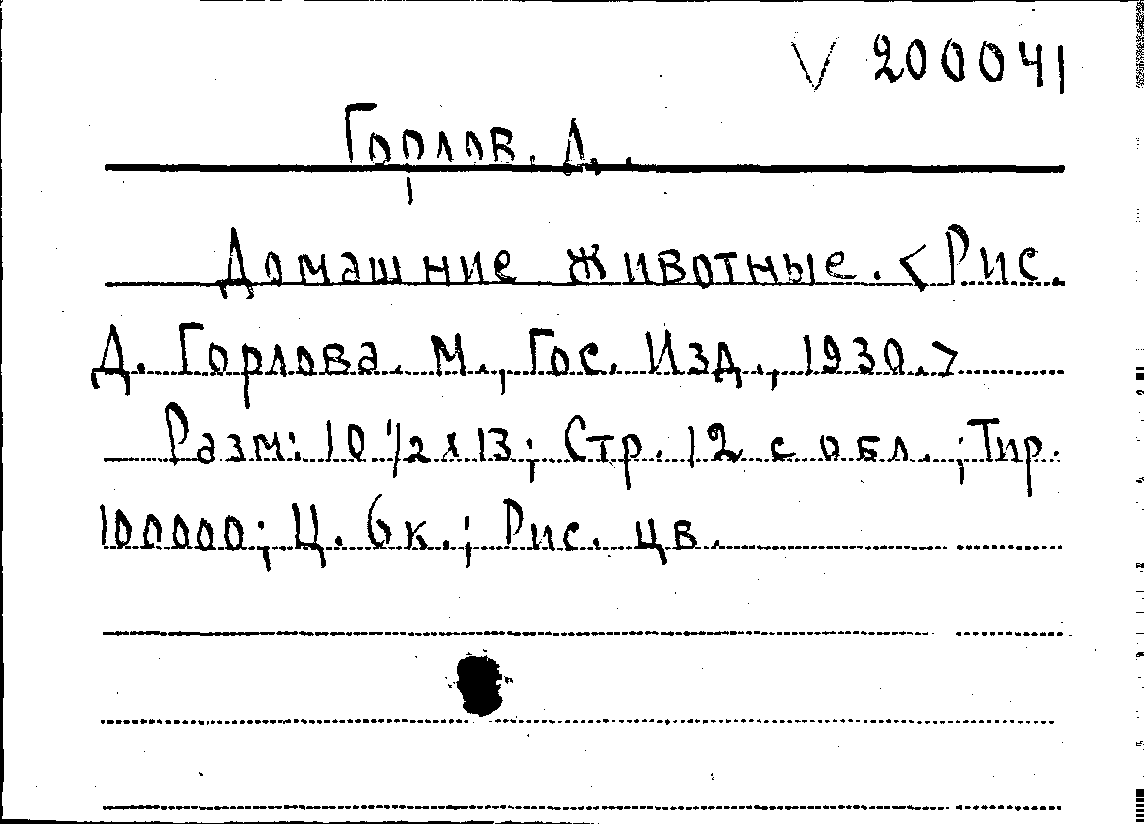 V 200041
Горлов, Д.
Домашние животные. <Рис.
Д. Горлова. М., Гос. Изд., 1930.>
Разм: 10 1/2 x 13; Стр. 12 с обл.; Тир.
100000; Ц. 6 к.; Рис. цв.